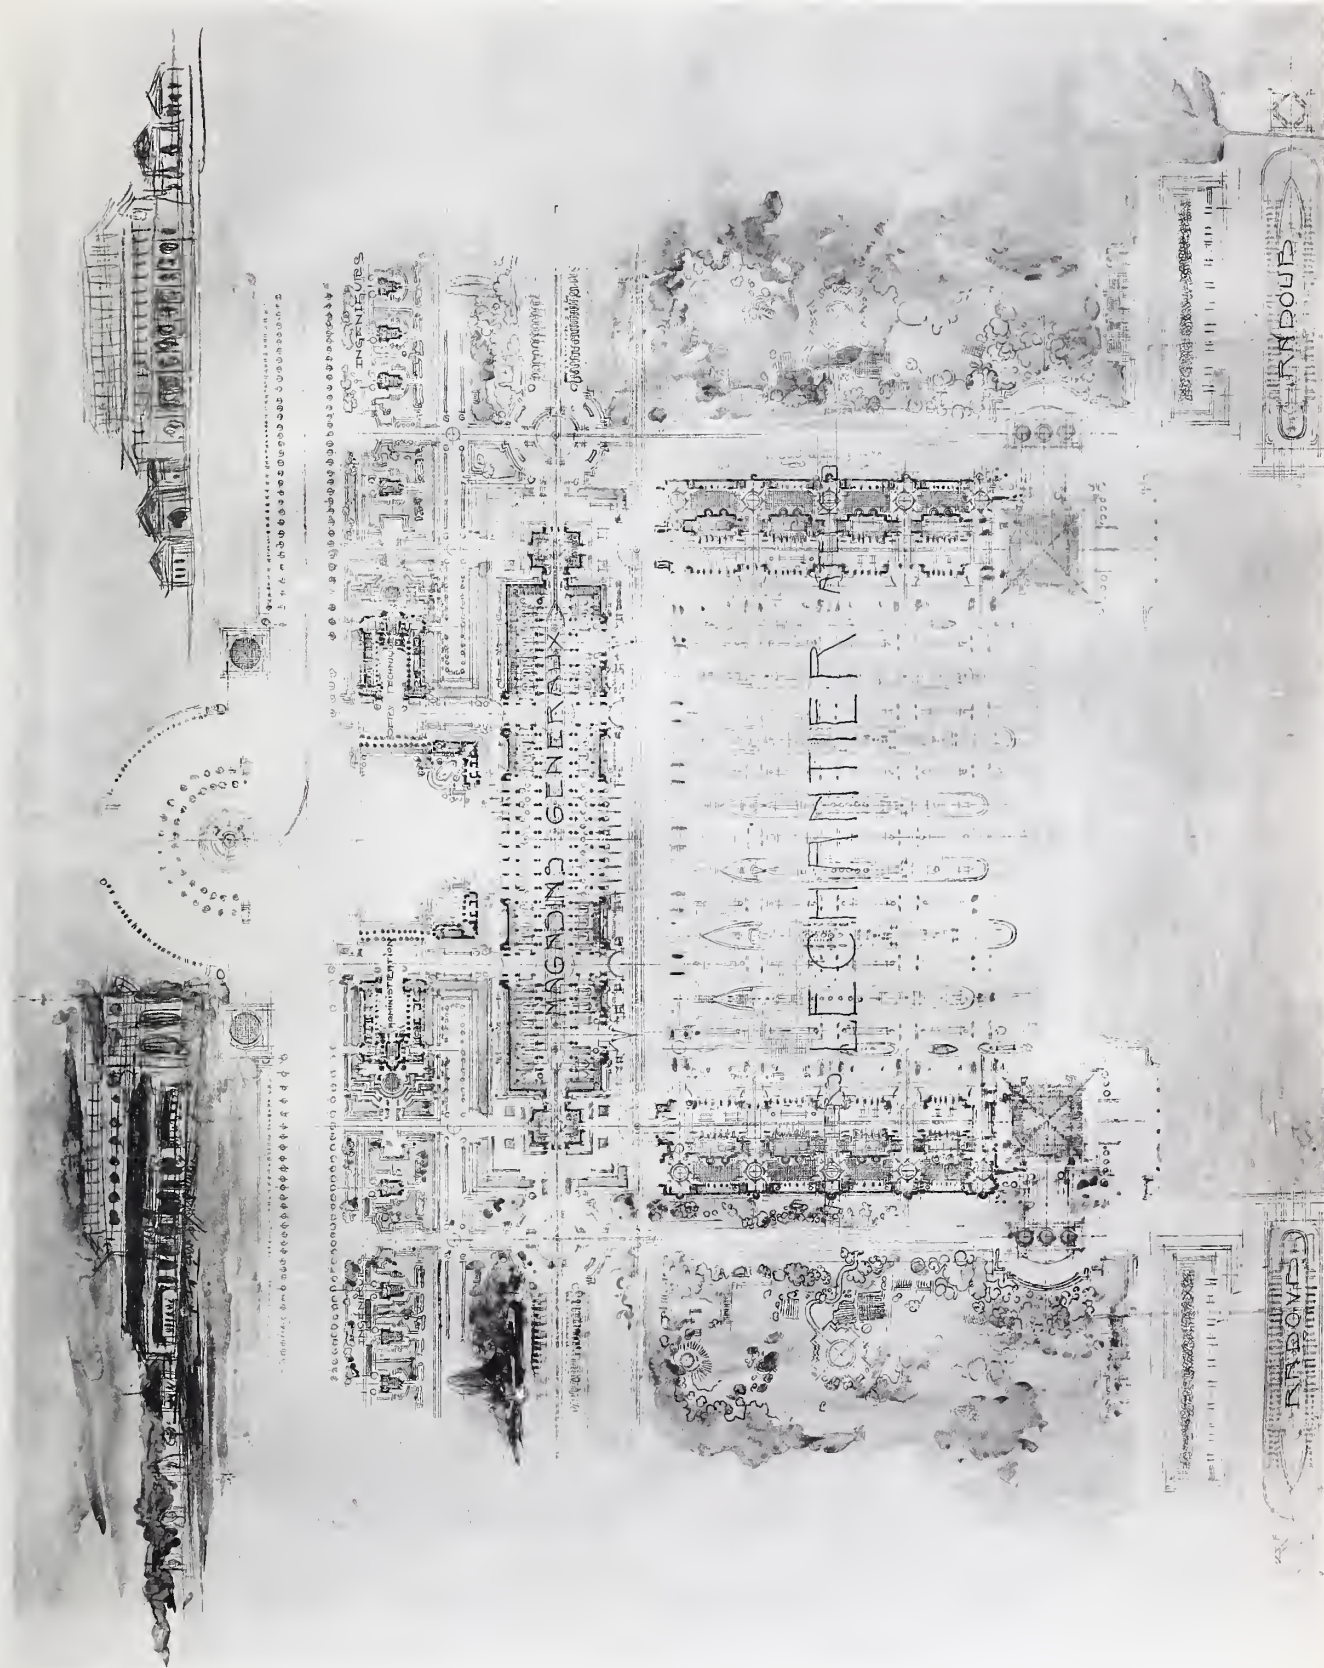 INGENIEURS
ADMINISTRATION
INGENIEURS
MAGASINS GENERAUX
LE CHANTIER
RADOUB
RADOUB